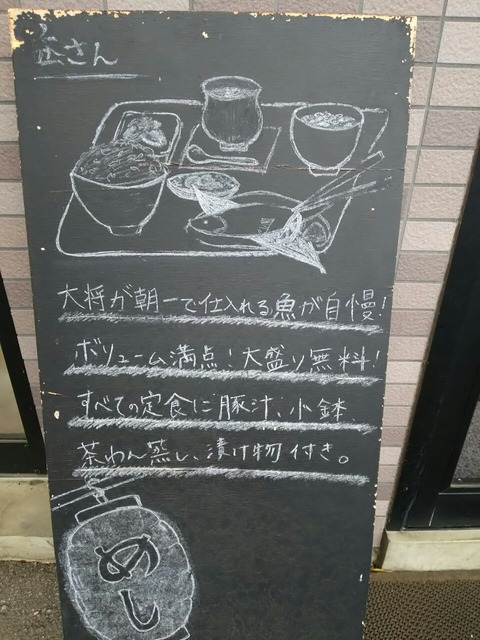 岳さん
大将が朝一で仕入れる魚が自慢!
ボリューム満点!大盛り無料!
すべての定食に豚汁、小鉢、
茶わん蒸し、漬け物付き。
めし